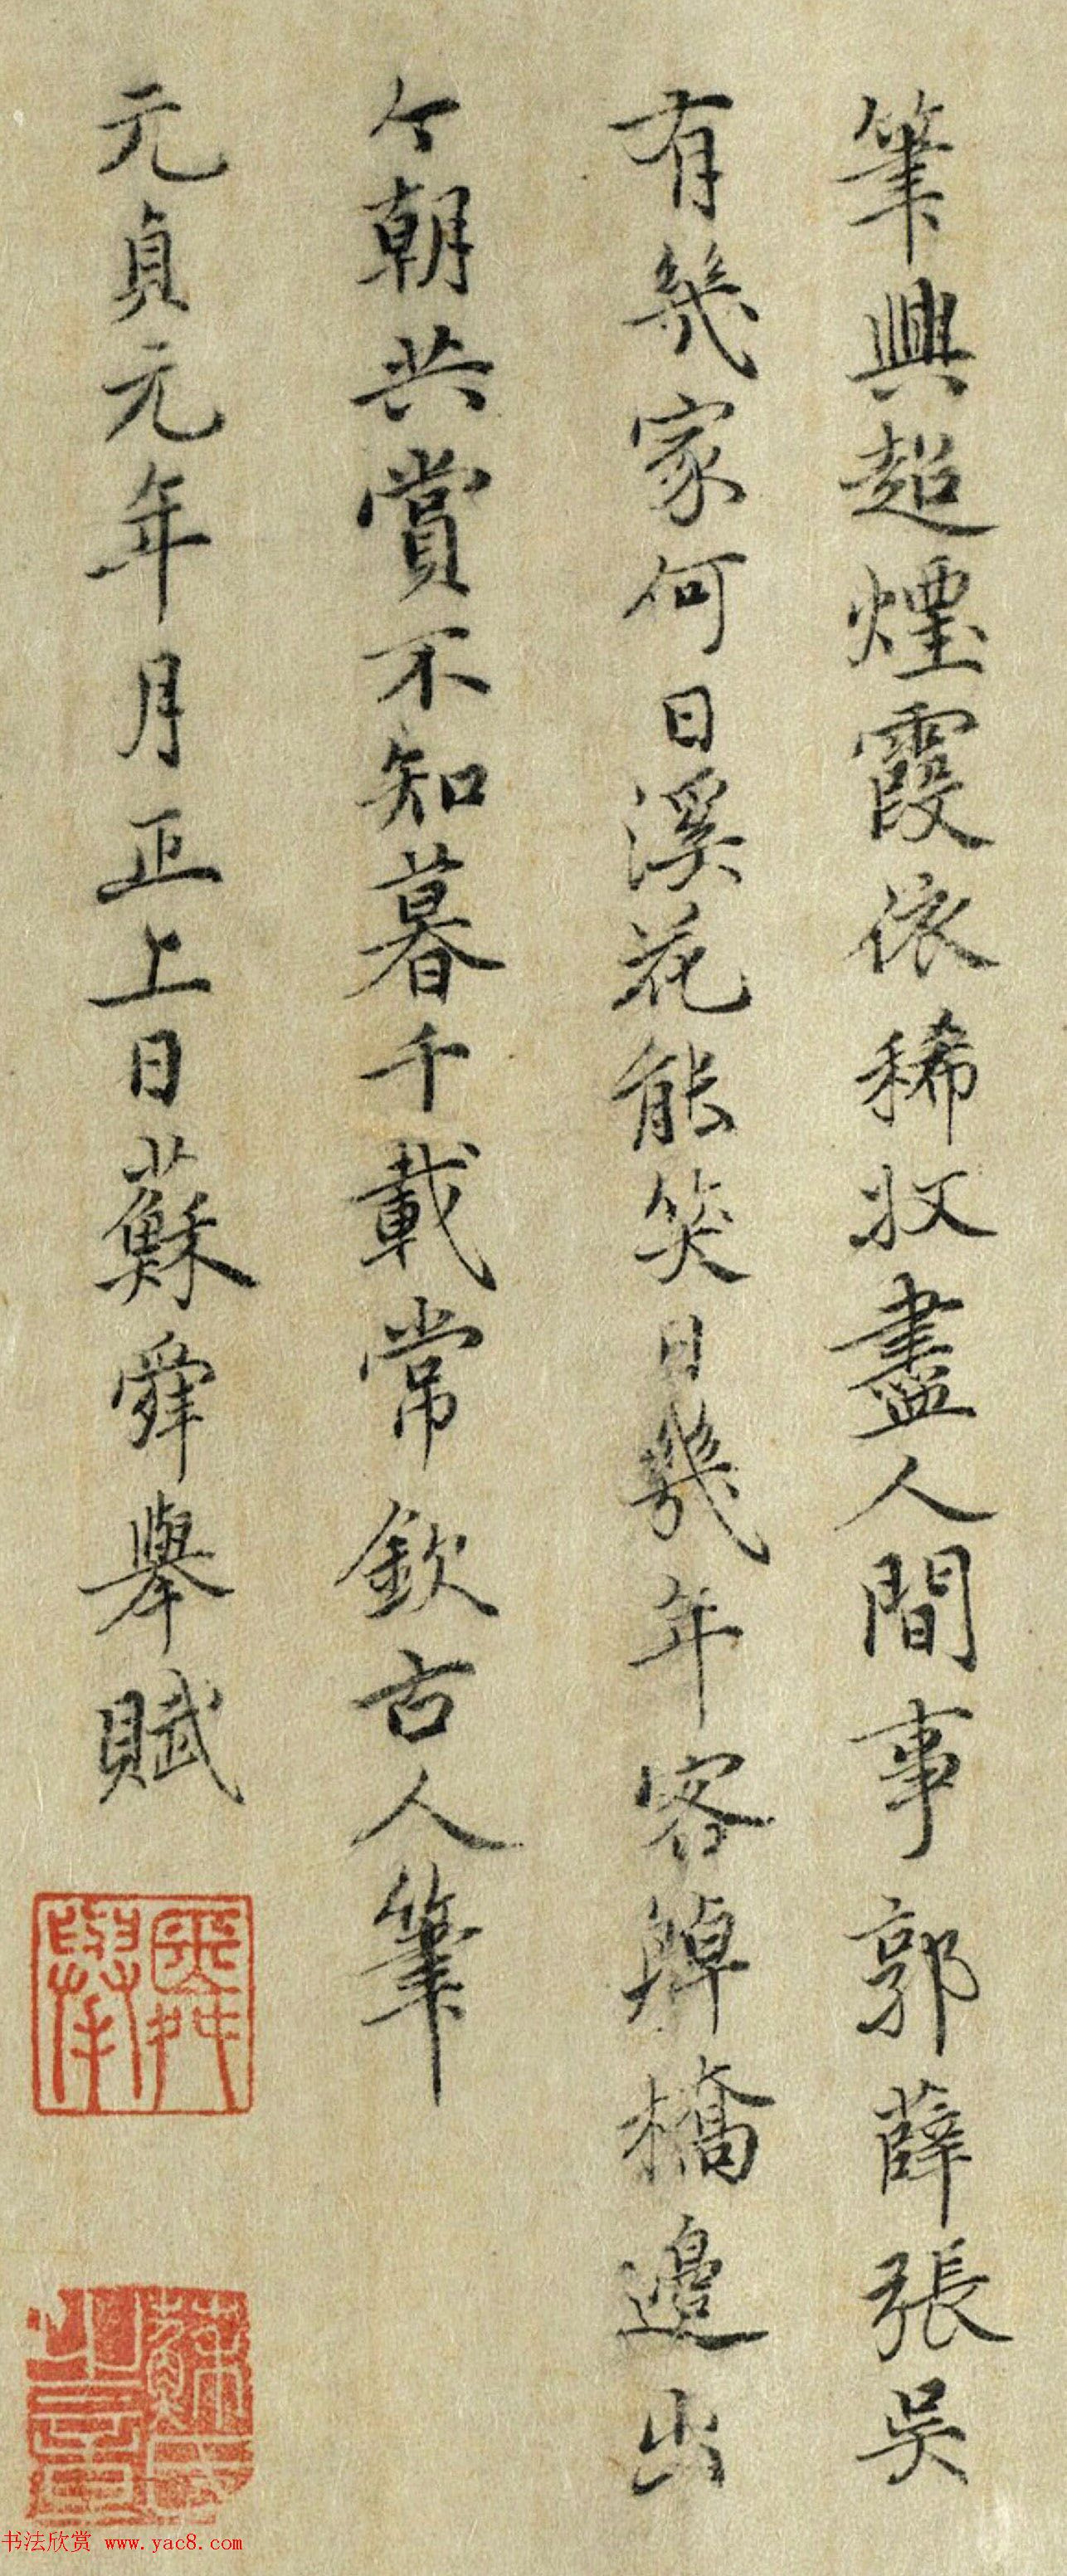 筆興超煙霞依稀收盡人間事郭薛張吳
有幾家何日溪花能笑日幾年客踔橋邊出
今朝共賞不知暮千載常欽古人筆
元貞元年月正上日蘇舜舉賦
舜舉
书法欣赏 www.yac8.com